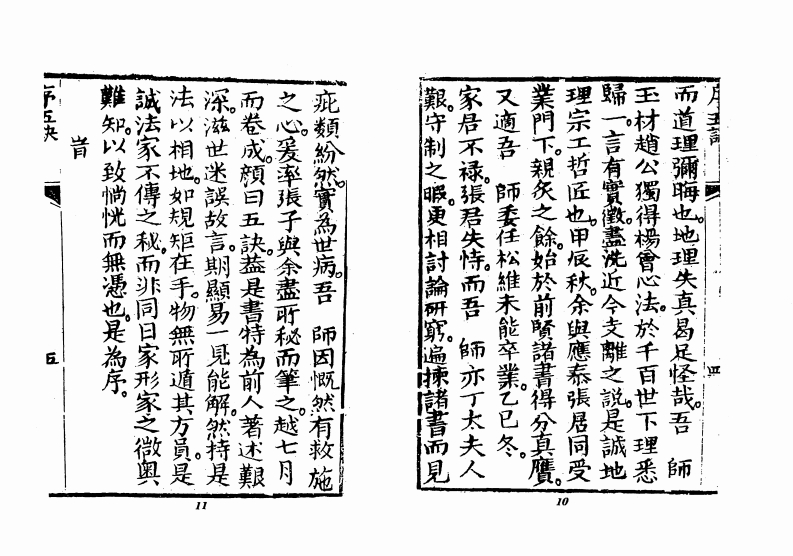 序五訣
四
而道理彌晦也。地理失真曷足怪哉。吾　師
玉材趙公獨得楊曾心法。於千百世下理悉
歸一。言有實徵。盡洗近今支離之說。是誠地
理宗工哲匠也。甲辰秋。余與應泰張居同受
業門下。親炙之餘。始於前賢諸書得分真贗。
又適吾　師委任松維未能卒業。乙巳冬。
家君不祿。張君失恃。而吾　師亦丁太夫人
艱。守制之暇。更相討論研窮。遍揀諸書而見
10
疵類紛然。實為世病。吾　師因慨然有救施
之心。爰率張子與余盡所秘而筆之。越七月
而卷成。顏曰五訣。葢是書特為前人著述艱
深。滋世迷誤。故言期顯易。一見能解。然持是
法以相地。如規矩在手。物無所遁其方員。是
誠法家不傳之秘。而非同日家形家之微奥
難知。以致惝恍而無憑也。是為序。
旹
序五訣
五
11